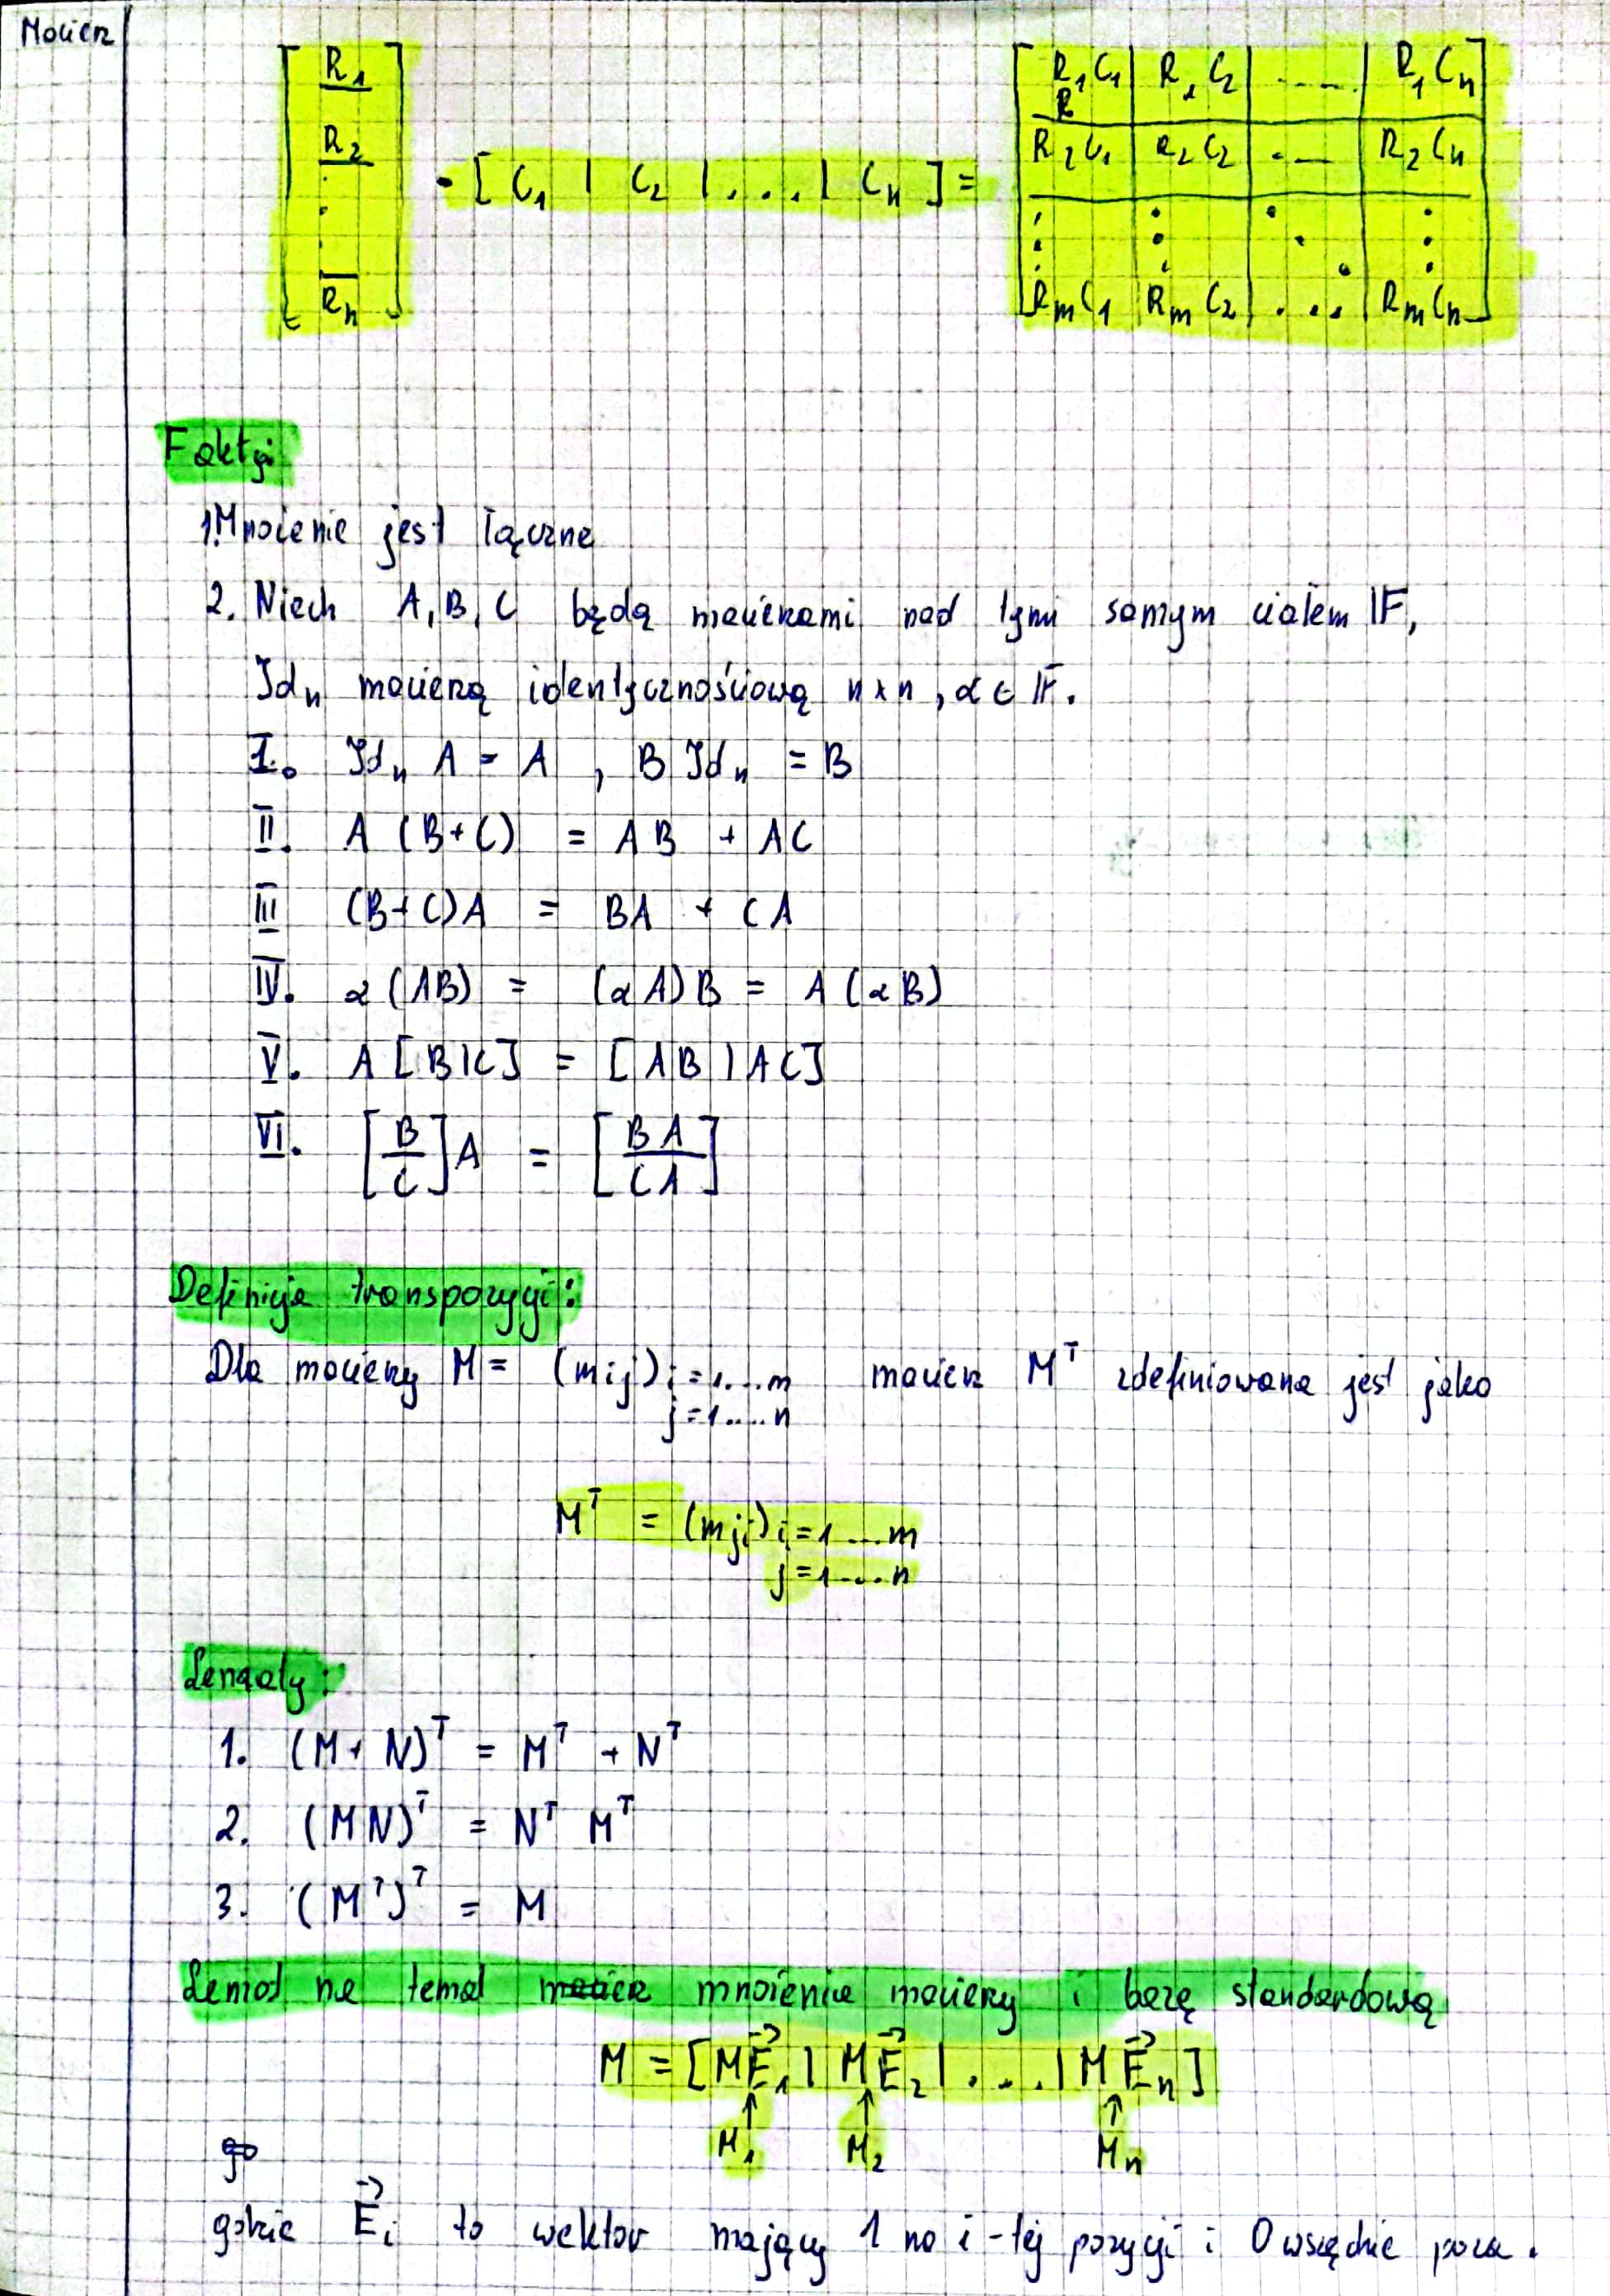 Macierz
[ R₁ / R₂ / . . . / Rₙ ] · [ C₁ | C₂ | . . . | Cₙ ] = [ R₁C₁ | R₁C₂ | .... | R₁Cₙ
R₂C₁ | R₂C₂ | .... | R₂Cₙ
⋮ ⋮ ⋱ ⋮
RₘC₁ | RₘC₂ | . . . | RₘCₙ ]
Fakty:
1. Mnożenie jest łączne
2. Niech A, B, C będą macierzami nad tym samym ciałem 𝔽,
Idₙ macierzą identycznościową n×n, α ∈ 𝔽.
I. Idₙ A = A , B Idₙ = B
II. A (B+C) = AB + AC
III (B+C)A = BA + CA
IV. α(AB) = (αA)B = A(αB)
V. A[B|C] = [AB|AC]
VI. [B / C] A = [BA / CA]
Definicja transpozycji:
Dla macierzy M = (mij) i=1....m macierz Mᵀ zdefiniowana jest jako
j=1.....n
Mᵀ = (mji) i=1....m
j=1....n
Lematy:
1. (M+N)ᵀ = Mᵀ + Nᵀ
2. (MN)ᵀ = Nᵀ Mᵀ
3. (Mᵀ)ᵀ = M
Lemat na temat mnożenia macierzy i bazę standardową
M = [ME⃗₁ | ME⃗₂ | . . . | ME⃗ₙ]
↑ ↑ ↑
M₁ M₂ Mₙ
gdzie E⃗ᵢ to wektor mający 1 na i-tej pozycji i 0 wszędzie poza.